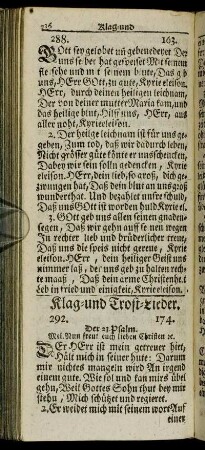 326 Klag-und
288. 163.
GOtt sey gelobet uñ gebenedeyet Der
uns selber hat gespeiset Mit seinem
fleische und mit seinem blute, Das gib
uns, HErr GOtt, zu gute, Kyrieeleison.
HErr, durch deinen heiligen leichnam,
Der von deiner mutter Maria kam, und
das heilige blut, Hilff uns, HErr, aus
aller noht, Kyrieeleison.
2. Der heilge leichnam ist für uns ge-
geben, Zum tod, daß wir dadurch leben,
Nicht grösser güte könte er uns schencken,
Dabey wir sein solln gedencken, Kyrie
eleison. HErr, dein lieb, so groß, dich ge-
zwungen hat, Daß dein blut an uns groß
wunder that, Und bezahlet unsre schuld,
Daß uns Gott ist worden huld, Kyrieel.
3. Gott geb uns allen seiner gnaden
segen, Daß wir gehn auff seinen wegen
In rechter lieb und brüderlicher treue,
Daß uns die speis nicht gereue, Kyrie
eleison. HErr, dein heiliger Geist uns
nimmer laß, der uns geb zu halten rech-
te maaß, Daß dein arme Christenheit
Leb in fried und einigkeit, Kyrieeleison.
Klag-und Trost-Lieder.
292. 174.
Der 23. Psalm.
Mel. Nun freut euch lieben Christen ꝛc.
DEr HErr ist mein getreuer hirt,
Hält mich in seiner hute: Darum
mir nichtes mangeln wird An irgend
einem gute. Wie sol und kan mirs übel
gehn, Weil Gottes Sohn thut bey mir
stehn, Mich schützet und regieret.
2. Er weidet mich mit seinem wort Auf
einer